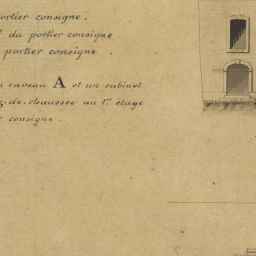 portier consigne.
du portier consigne
portier consigne.
caveau A et un cabinet
de-chaussée au 1er étage
consigne.